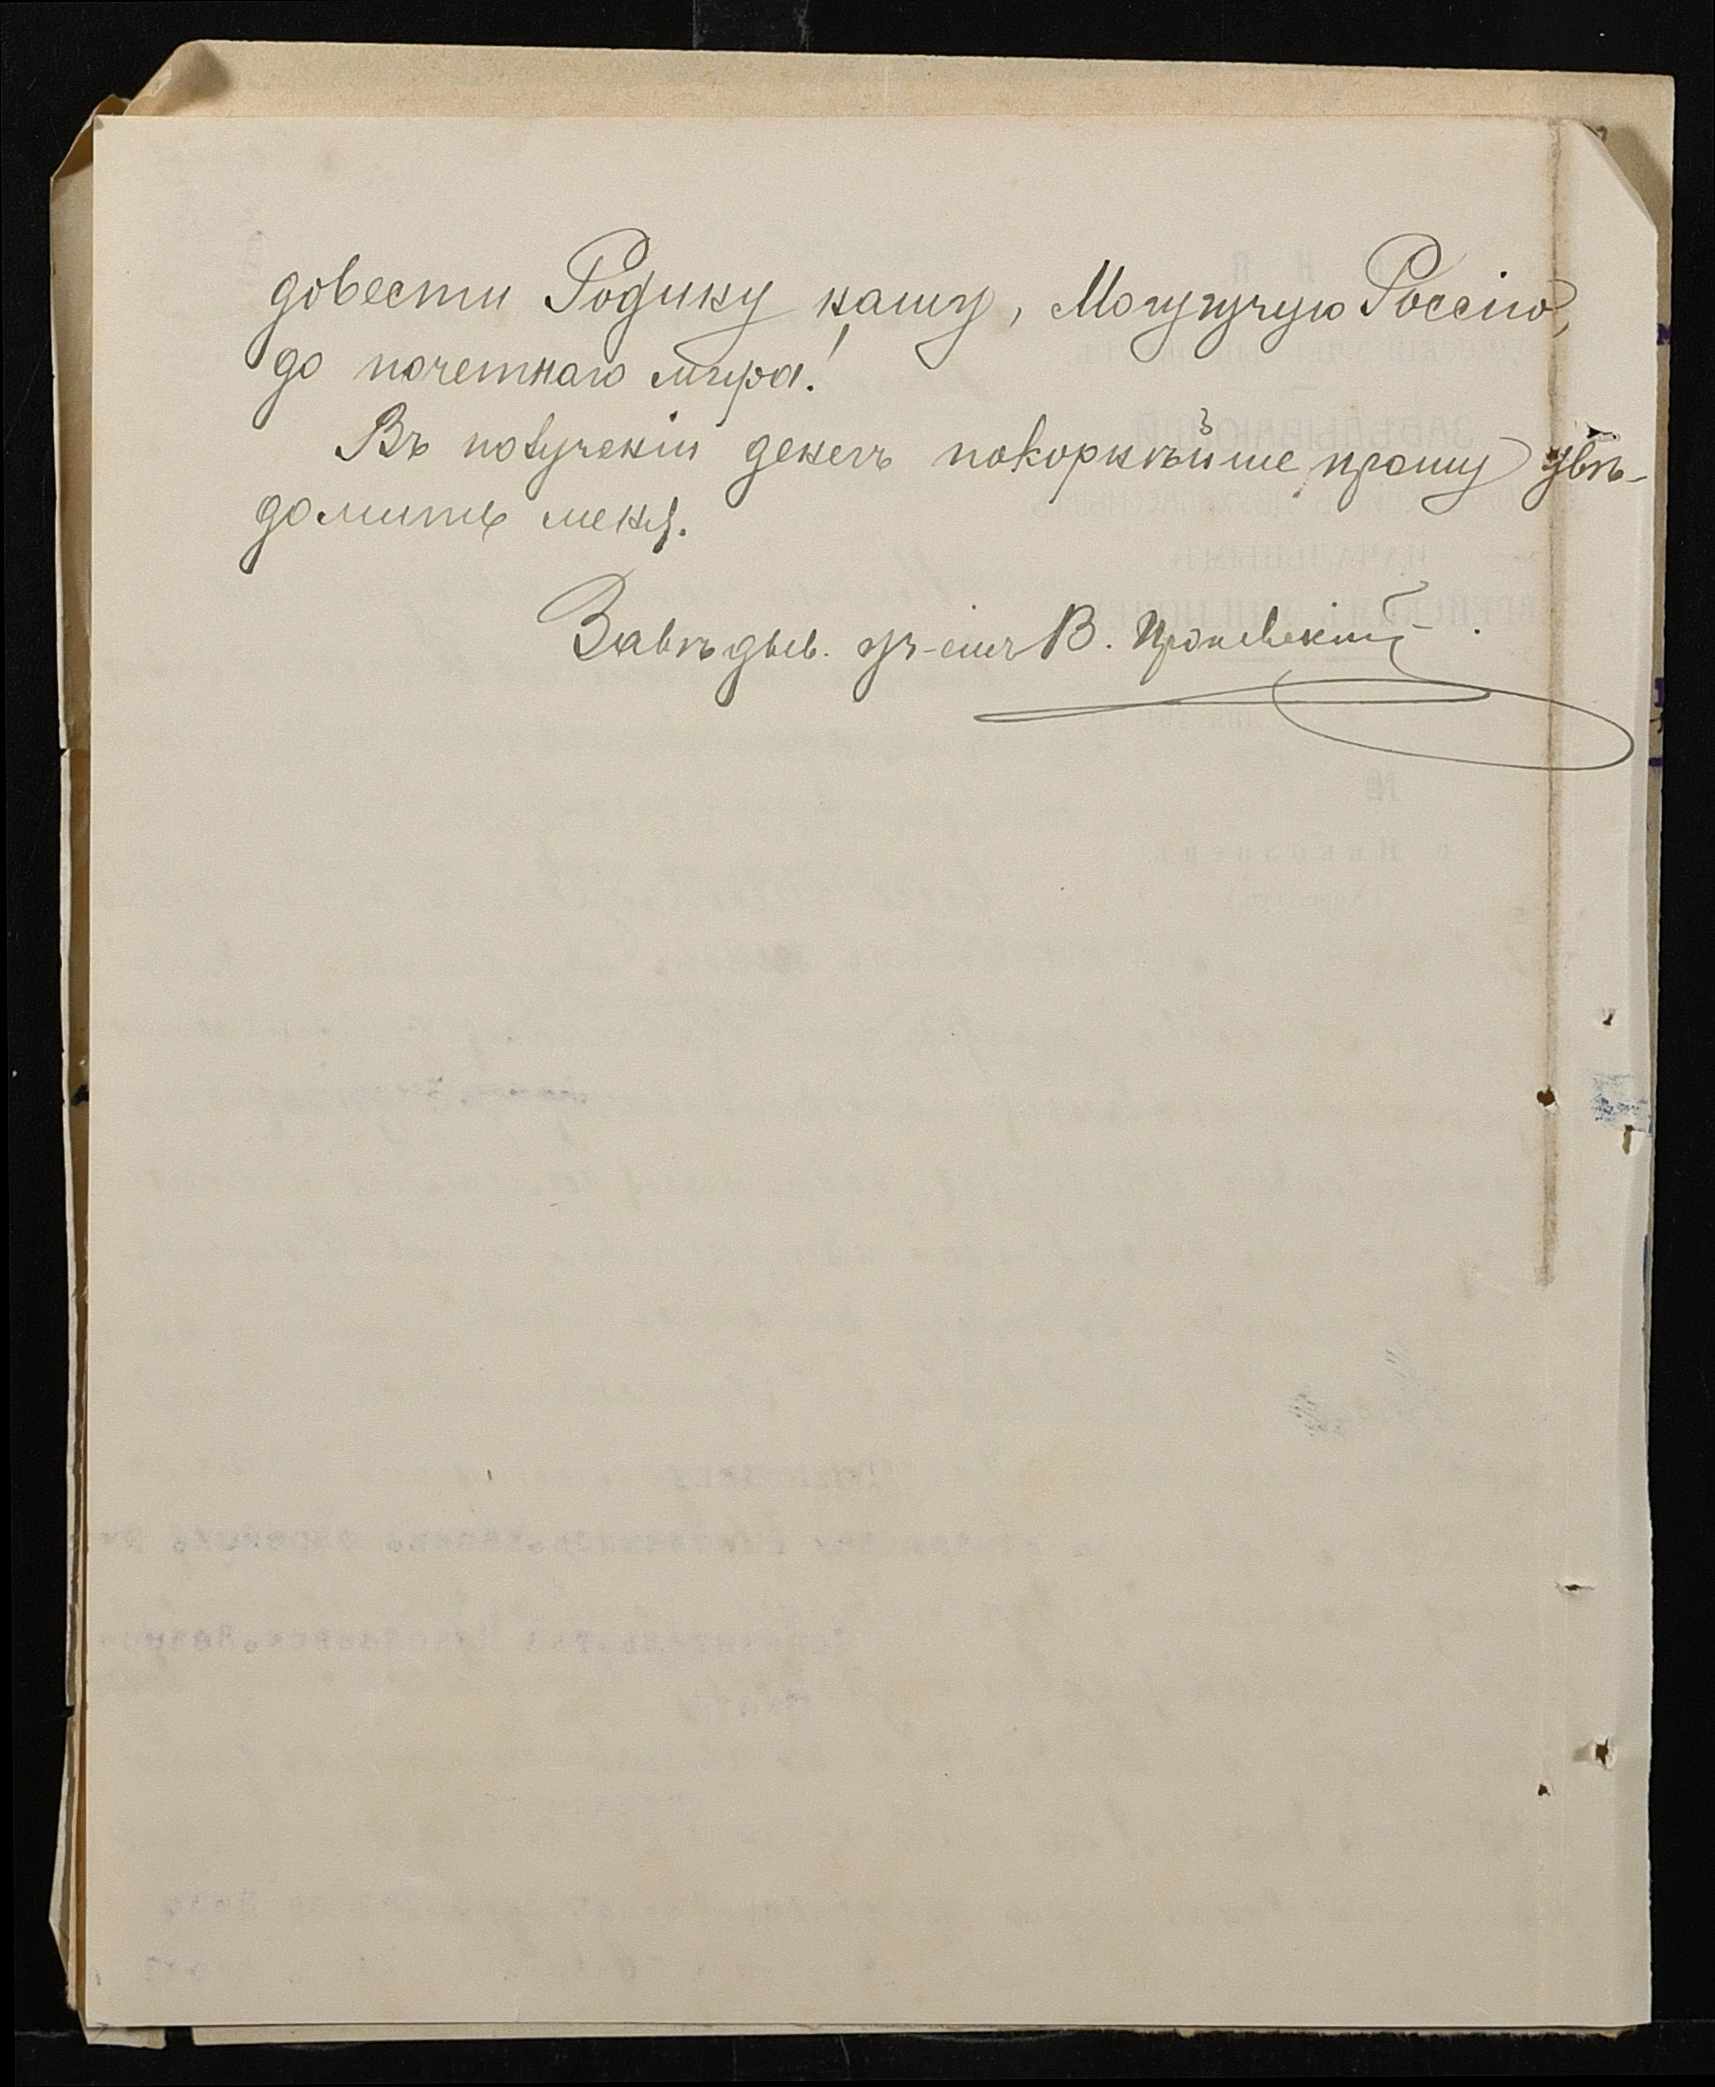 довести Родину нашу, Могучую Россію,
до почетнаго мира!
Въ полученіи денегъ покорнѣйше прошу увѣ-
домить меня.
Завѣдыв. уч-щемъ В.